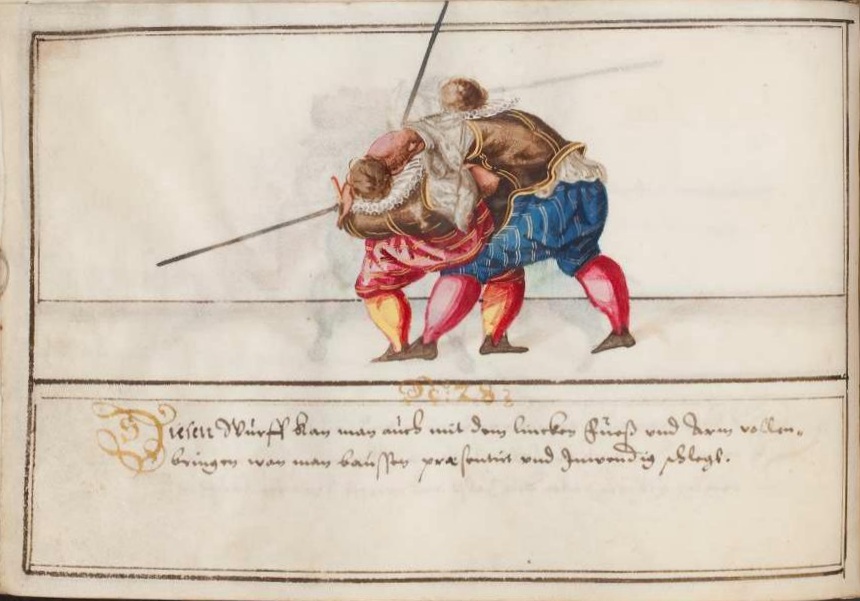 No: 28
Diesen Wurff Kan man auch mit dem lincken Fueß und Arm vollen-
bringen wan man baussen præsentirt und Inwendig schlegt.